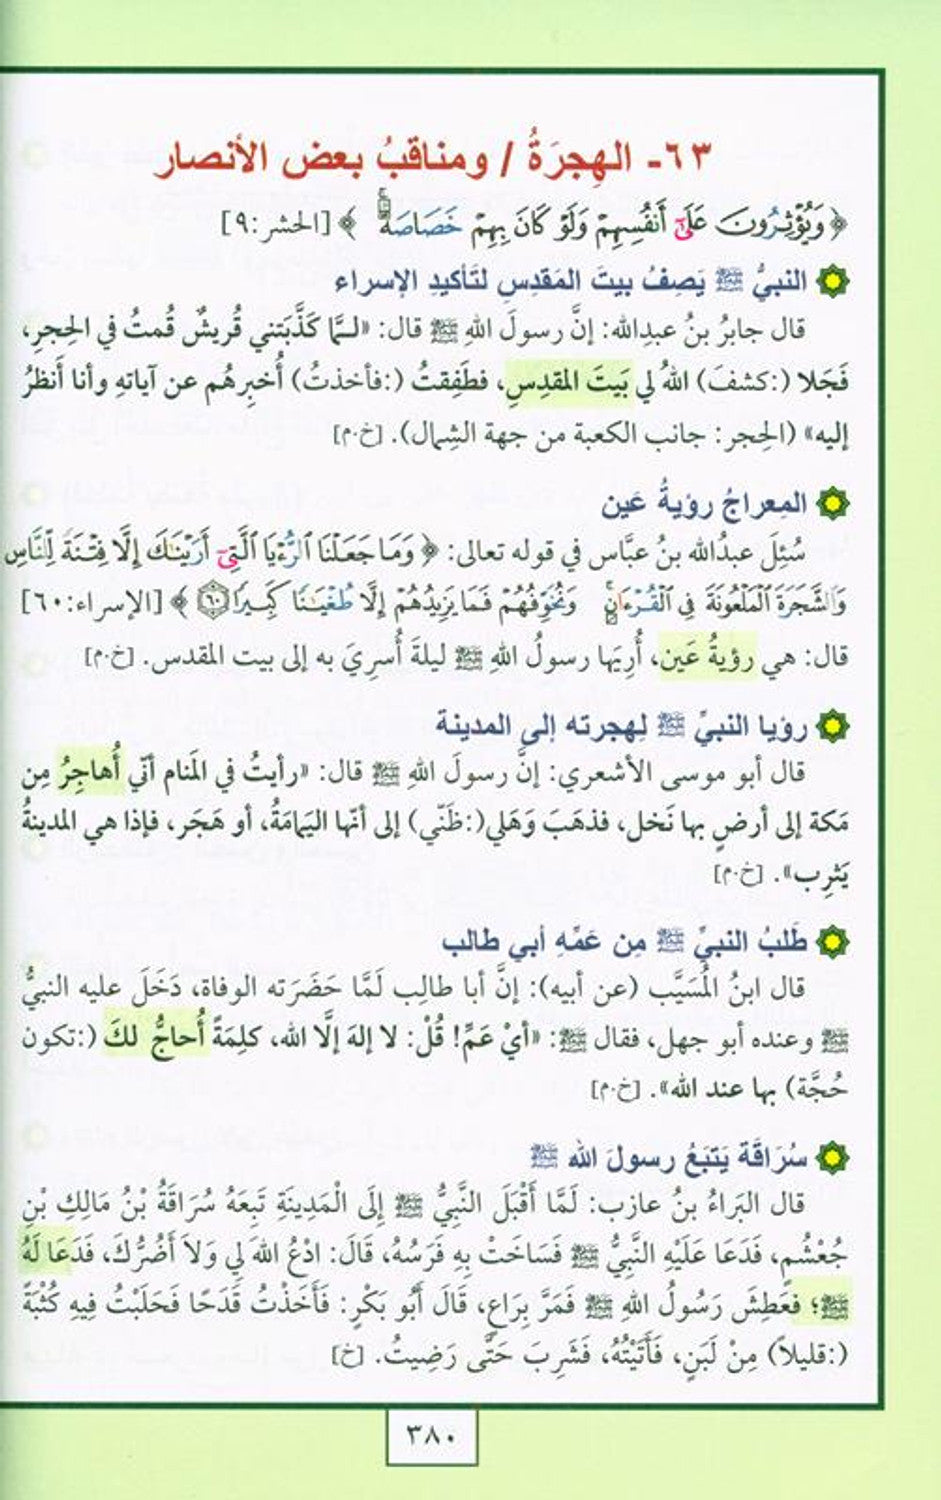 ٦٣- الهِجرَةُ / ومناقبُ بعض الأنصار
﴿ وَيُؤْثِرُونَ عَلَىٰٓ أَنفُسِهِمْ وَلَوْ كَانَ بِهِمْ خَصَاصَةٌ ۚ ﴾ [الحشر:٩]
النبيُّ ﷺ يَصِفُ بيتَ المَقدِسِ لتَأكيدِ الإسراء
قال جابرُ بنُ عبدِالله: إنَّ رسولَ اللهِ ﷺ قال: «لـمَّا كَذَّبَتني قُريشٌ قُمتُ في الحِجرِ،
فَجَلا (:كشفَ) اللهُ لي بَيتَ المقدِسِ، فطَفِقتُ (:فأخذتُ) أُخبِرهُم عن آياتهِ وأنا أَنظرُ
إليه» (الحِجر: جانب الكعبة من جهة الشِمال). [خ.م]
المِعراجُ رؤيةُ عَين
سُئِلَ عبدُالله بنُ عبَّاس في قوله تعالى: ﴿ وَمَا جَعَلْنَا ٱلرُّءْيَا ٱلَّتِىٓ أَرَيْنَٰكَ إِلَّا فِتْنَةً لِّلنَّاسِ
وَٱلشَّجَرَةَ ٱلْمَلْعُونَةَ فِى ٱلْقُرْءَانِ ۚ وَنُخَوِّفُهُمْ فَمَا يَزِيدُهُمْ إِلَّا طُغْيَٰنًا كَبِيرًا ٦٠ ﴾ [الإسراء:٦٠]
قال: هي رؤيةُ عَين، أُرِيَها رسولُ اللهِ ﷺ ليلةَ أُسرِيَ به إلى بيت المقدس. [خ.م]
رؤيا النبيِّ ﷺ لِهجرته إلى المدينة
قال أبو موسى الأشعري: إنَّ رسولَ اللهِ ﷺ قال: «رأيتُ في المَنام أنّي أُهاجِرُ مِن
مَكة إلى أرضٍ بها نَخل، فذهَبَ وَهَلي(:ظَنّي) إلى أنّها اليَمامَةُ، أو هَجَر، فإذا هي المدينةُ
يَثرِب». [خ.م]
طَلبُ النبيِّ ﷺ مِن عَمِّهِ أبي طالب
قال ابنُ المُسَيَّب (عن أبيه): إنَّ أبا طالِب لَمَّا حَضَرَته الوفاة، دَخَلَ عليه النبيُّ
ﷺ وعنده أبو جهل، فقال ﷺ: «أيْ عَمِّ! قُلْ: لا إلهَ إلَّا الله، كلِمَةً أُحاجُّ لكَ (:تكون
حُجَّة) بها عند الله». [خ.م]
سُرَاقَة يَتبَعُ رسولَ الله ﷺ
قال البَراءُ بنُ عازب: لَمَّا أَقْبَلَ النَّبِيُّ ﷺ إِلَى الْمَدِينَةِ تَبِعَهُ سُرَاقَةُ بْنُ مَالِكِ بْنِ
جُعْشُمٍ، فَدَعَا عَلَيْهِ النَّبِيُّ ﷺ فَسَاخَتْ بِهِ فَرَسُهُ، قَالَ: ادْعُ اللهَ لِي وَلاَ أَضُرُّكَ، فَدَعَا لَهُ
ﷺ؛ فعَطِشَ رَسُولُ اللهِ ﷺ فَمَرَّ بِرَاعٍ، قَالَ أَبُو بَكْرٍ: فَأَخَذْتُ قَدَحًا فَحَلَبْتُ فِيهِ كُثْبَةً
(:قليلاً) مِنْ لَبَنٍ، فَأَتَيْتُهُ، فَشَرِبَ حَتَّى رَضِيتُ. [خ]
٣٨٠